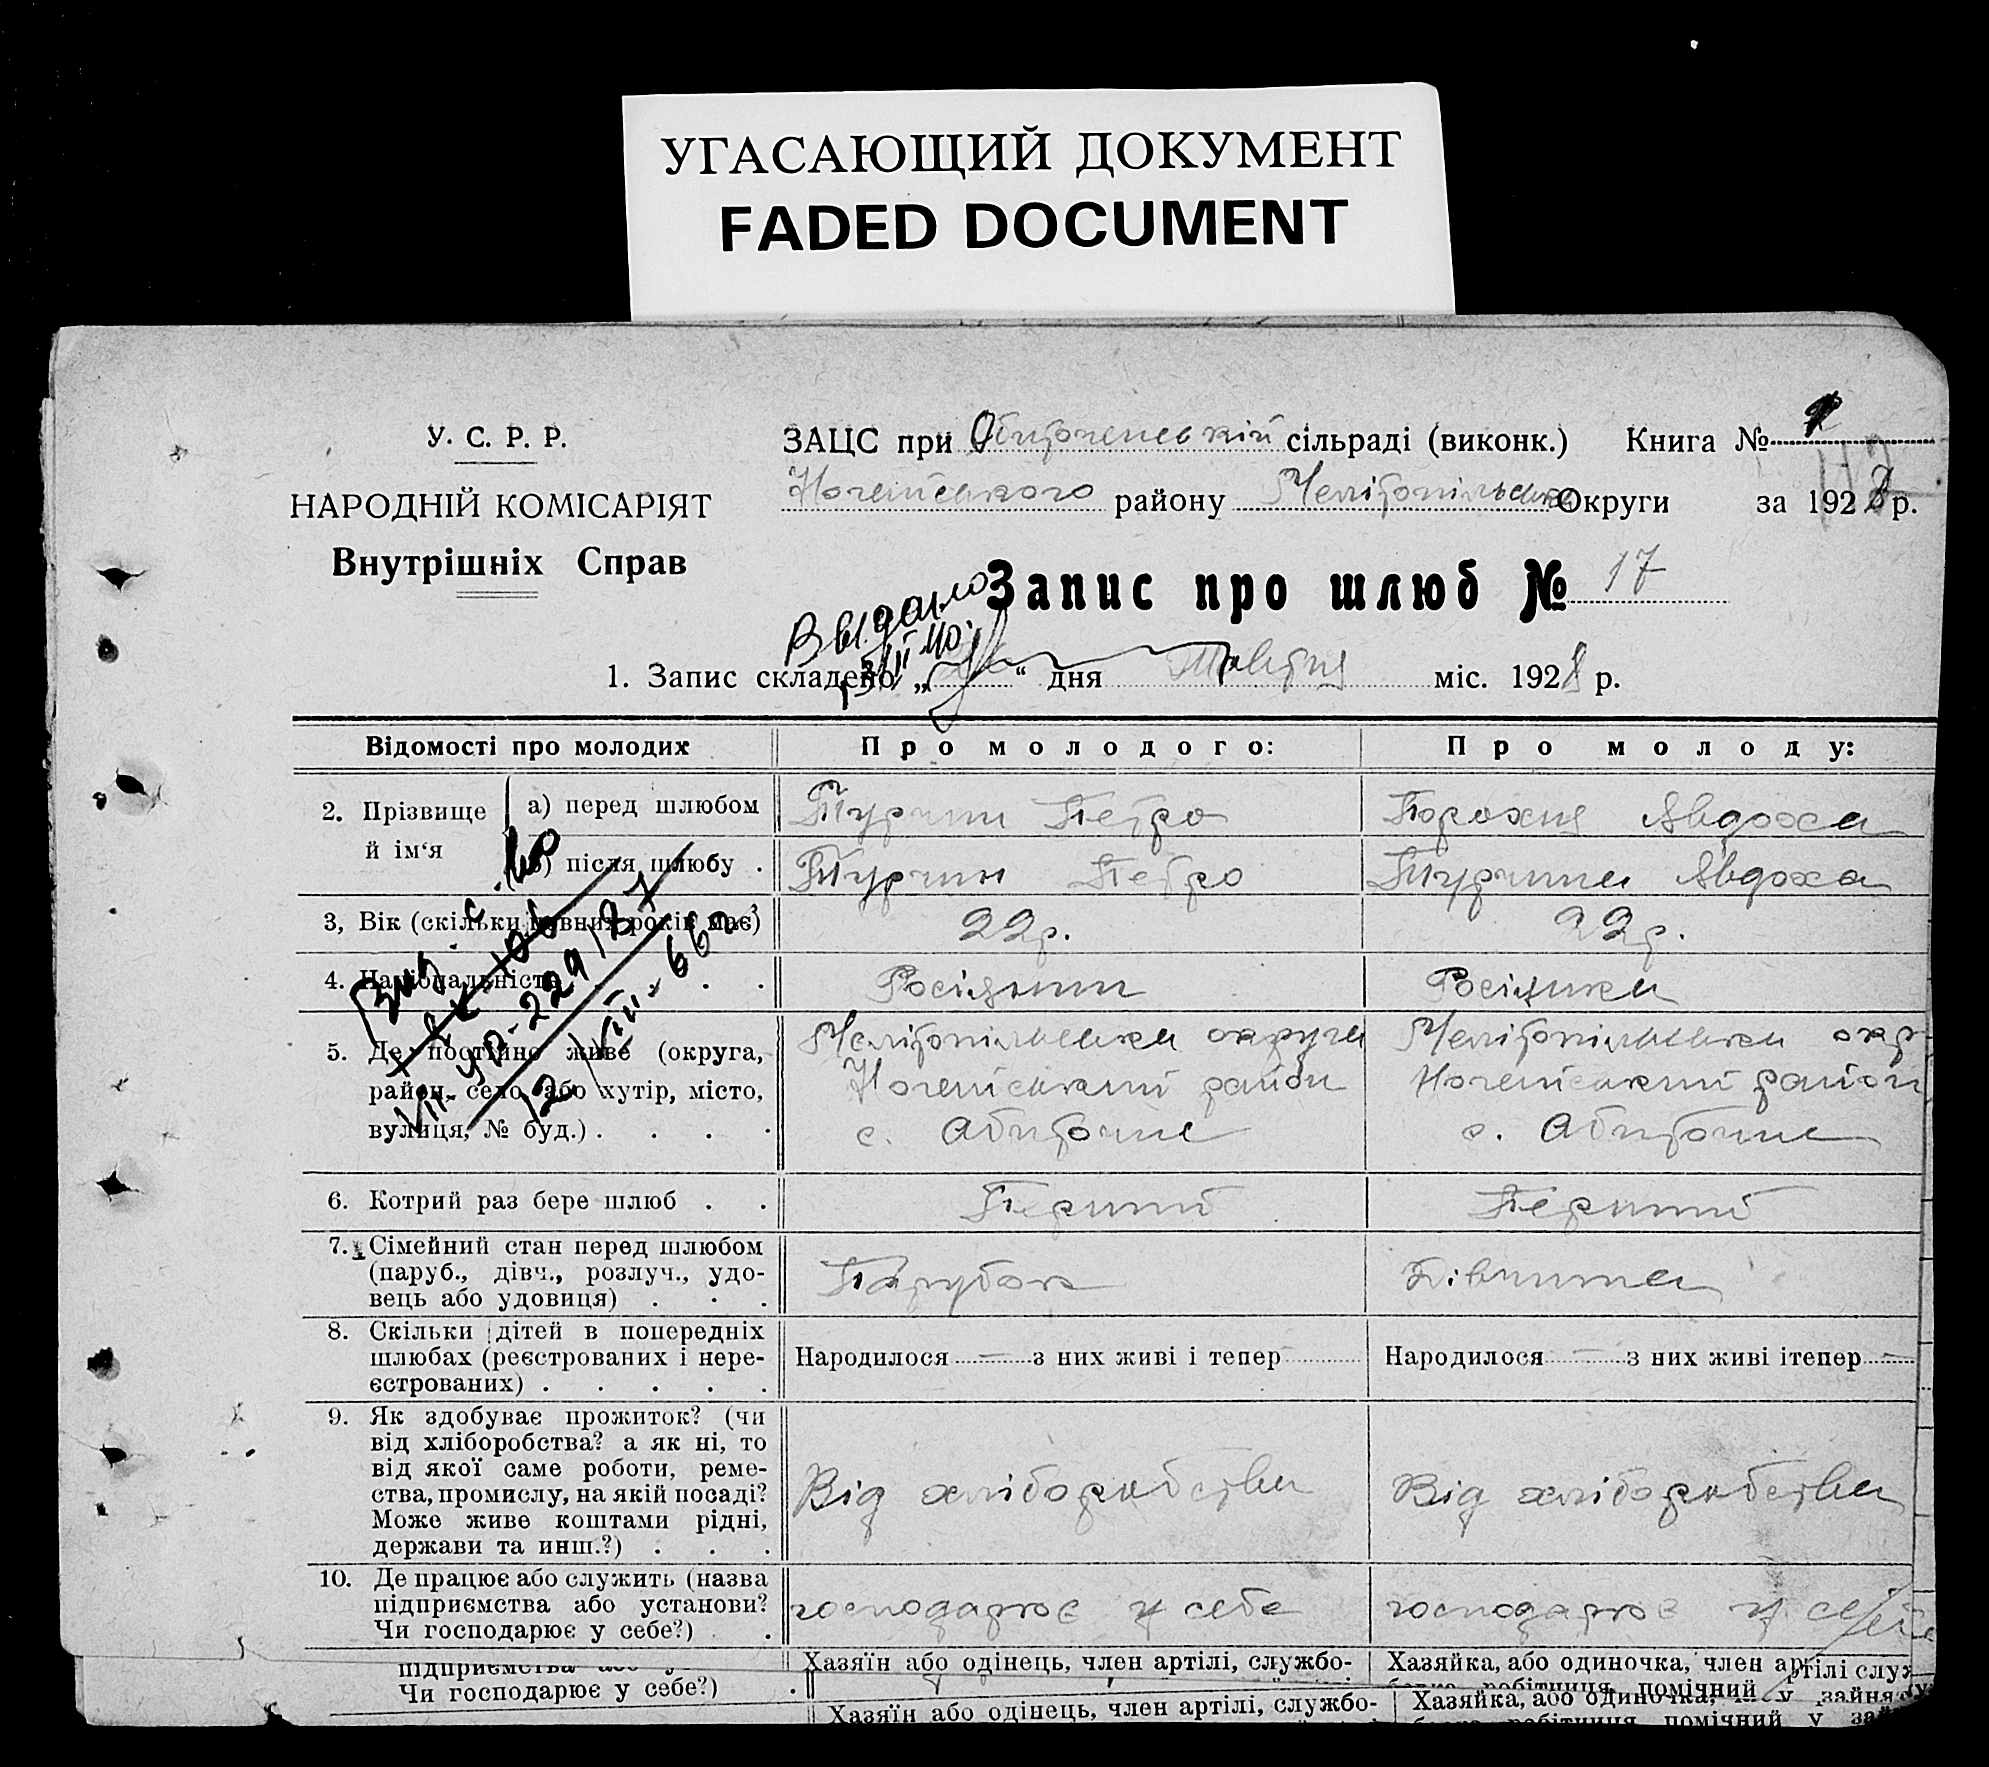 УГАСАЮЩИЙ ДОКУМЕНТ
FADED DOCUMENT
У. С. Р. Р.
НАРОДНІЙ КОМІСАРІЯТ
Внутрішніх Справ
ЗАЦС при Обиточенській сільраді (виконк.) Книга №
Ногайського району Мелітопільська Округи за 1928 р.
Запис про шлюб № 17
Видано
1. Запис складено „ “ дня міс. 1928 р.
Відомості про молодих Про молодого: Про молоду:
2. Прізвище й ім‘я
а) перед шлюбом Турчин Петро Порохня Авдоха
б) після шлюбу . Турчин Петро Турчина Авдоха
3, Вік (скільки повних років має) 22р. 22р.
4. Національність . . . Росіянин Росіянка
5. Де постійно живе (округа, район, село, або хутір, місто, вулиця, № буд.) . . . .
Мелітопільська округи
Ногайський район
с. Обиточне
Мелітопільська окр
Ногайський район
с. Обиточне
6. Котрий раз бере шлюб . . Перший Перший
7. Сімейний стан перед шлюбом
(паруб., дівч., розлуч., удо-
вець або удовиця) . . .
Парубок Дівчина
8. Скільки дітей в попередніх
шлюбах (реєстрованих і нере-
єстрованих) . . . . .
Народилося — з них живі і тепер
Народилося — з них живі ітепер —
9. Як здобуває прожиток? (чи
від хліборобства? а як ні, то
від якої саме роботи, реме-
ства, промислу, на якій посаді?
Може живе коштами рідні,
держави та инш.?) . . .
Від хліборобства Від хліборобства
10. Де працює або служить (назва
підприємства або установи?
Чи господарює у себе?) .
господарює у себе господарює у себе
Хазяїн або одінець, член артілі, службо-
Хазяйка, або одиночка, член артілі служ
Чи господарює у себе?) .
робітниця, помічний у зайня
Хазяїн або одінець, член артілі, службо-
Хазяйка, або одиночка,
робітниця помічний у